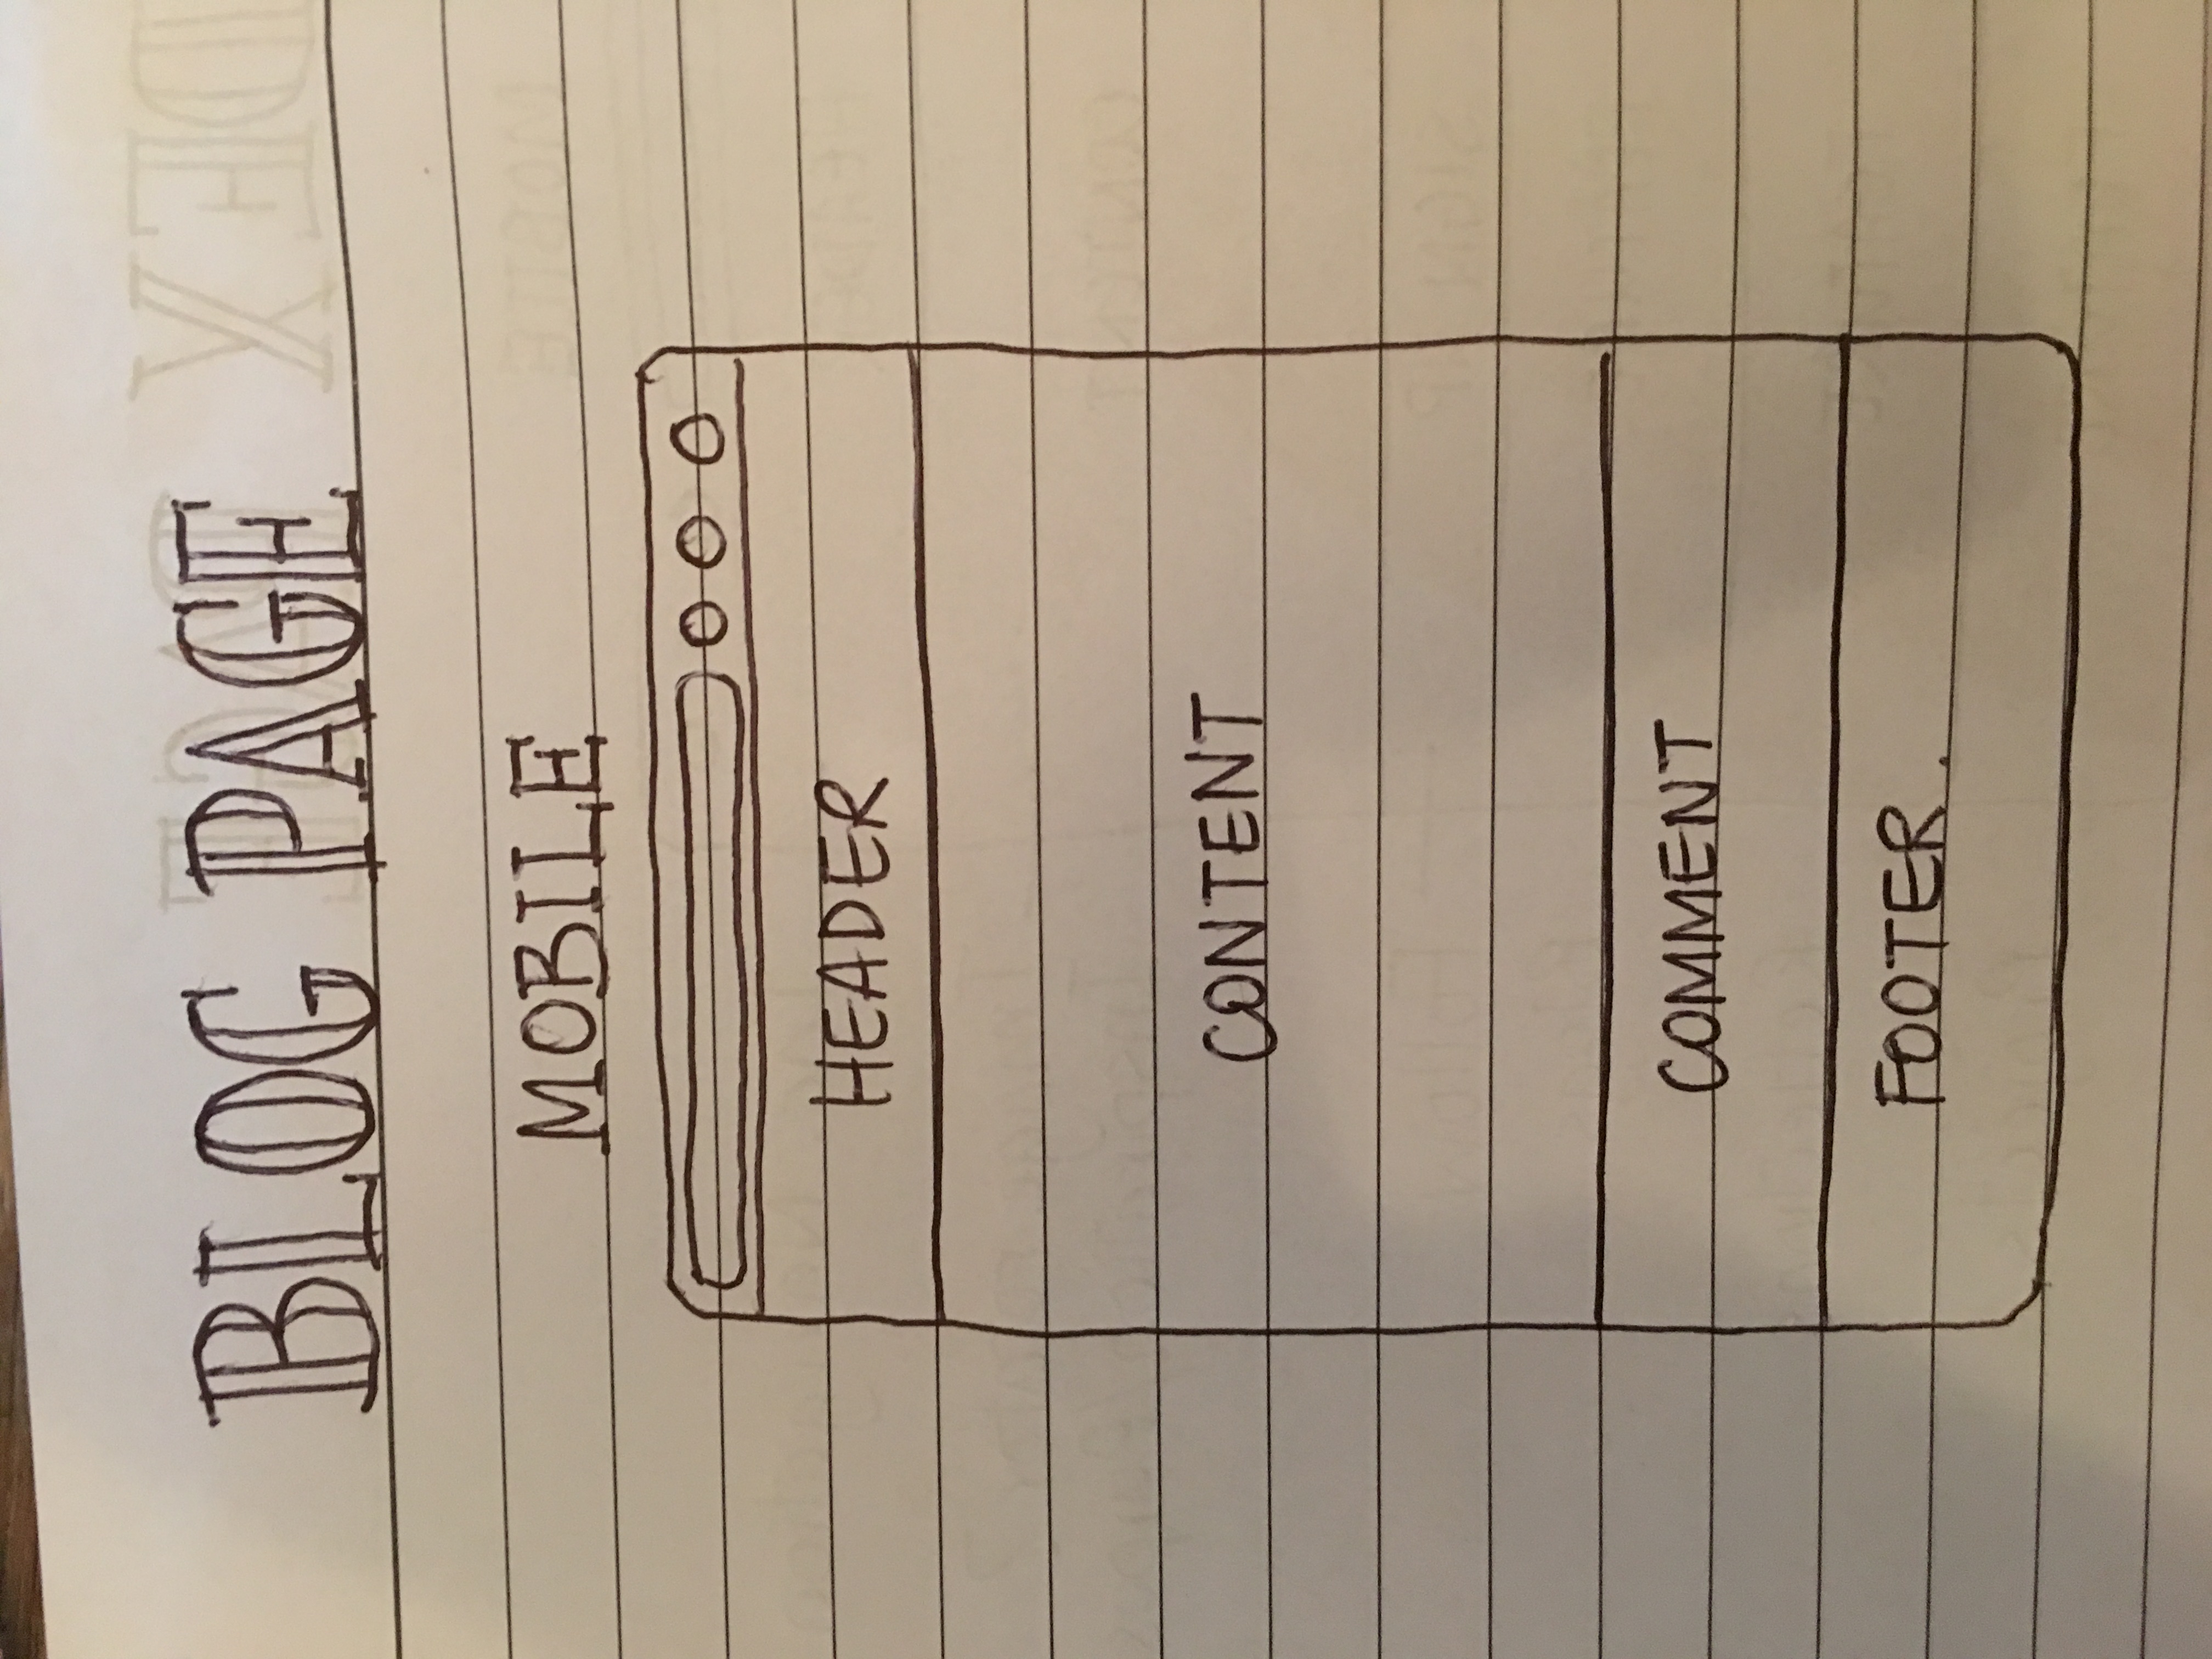 BLOG PAGE
MOBILE
HEADER
CONTENT
COMMENT
FOOTER.